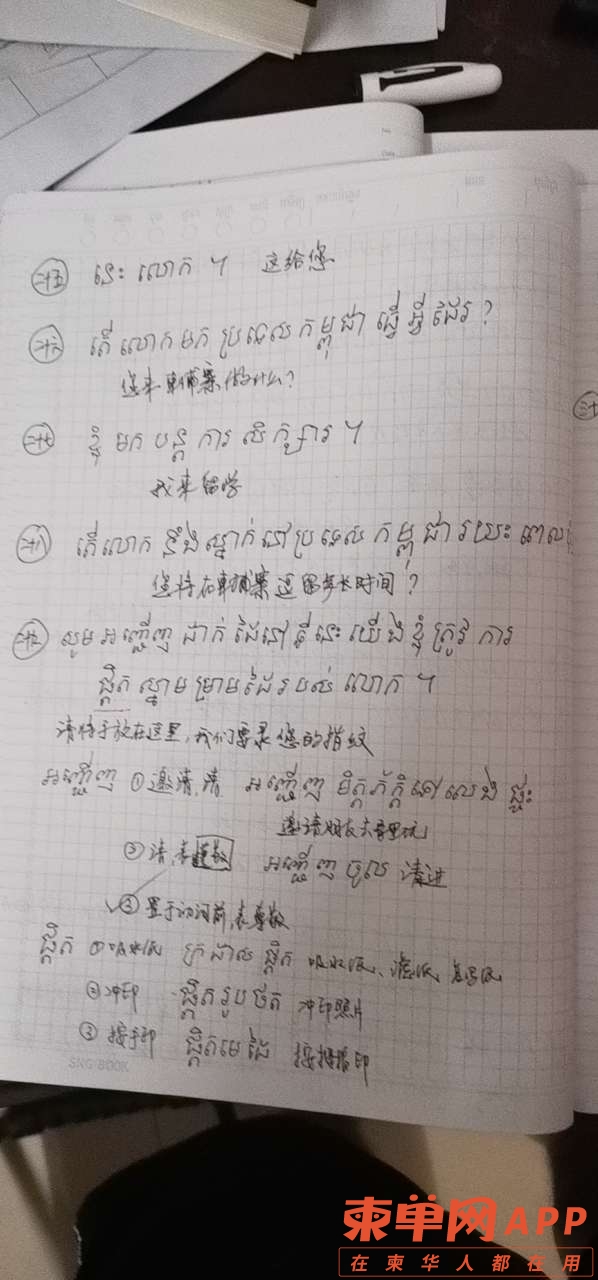 二十五 នេះ លោក ។ 这给您
二十六 តើ លោក មក ប្រទេស កម្ពុជា ធ្វើ អ្វី ដែរ ?
您来柬埔寨做什么?
二十七 ខ្ញុំ មក បន្ត ការ សិក្សារ ។
我来留学
二十八 តើ លោក នឹង ស្នាក់ នៅ ប្រទេស កម្ពុជា រយះ ពេល
您将在柬埔寨逗留多长时间?
二十九 សូម អញ្ជើញ ដាក់ ដៃ នៅ ទី នេះ យើង ខ្ញុំ ត្រូវ ការ
ផ្តិត ស្នាម ម្រាម ដៃ របស់ លោក ។
请将手放在这里,我们要录您的指纹
អញ្ជើញ ①邀请,请 អញ្ជើញ មិត្តភ័ក្តិ ទៅ លេង ផ្ទះ
邀请朋友去家里玩
②请,表 អញ្ជើញ ចូល 请进
③置于动词前,表尊敬
ផ្តិត ①吸水纸 ក្រដាស ផ្តិត 吸水纸、
②冲印 ផ្តិត រូប ថត 冲印照片
③按手印 ផ្តិត មេ ដៃ 按拇指印
SNG BOOK
三十
柬单网APP
在柬华人都在用